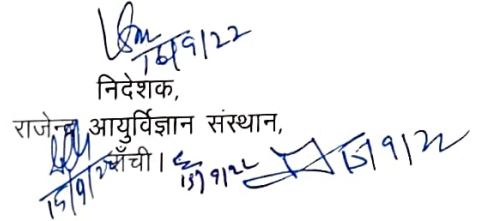 16/9/22
निदेशक,
राजेन्द्र आयुर्विज्ञान संस्थान,
राँची।
15/9/22
15/9/22
15/9/22